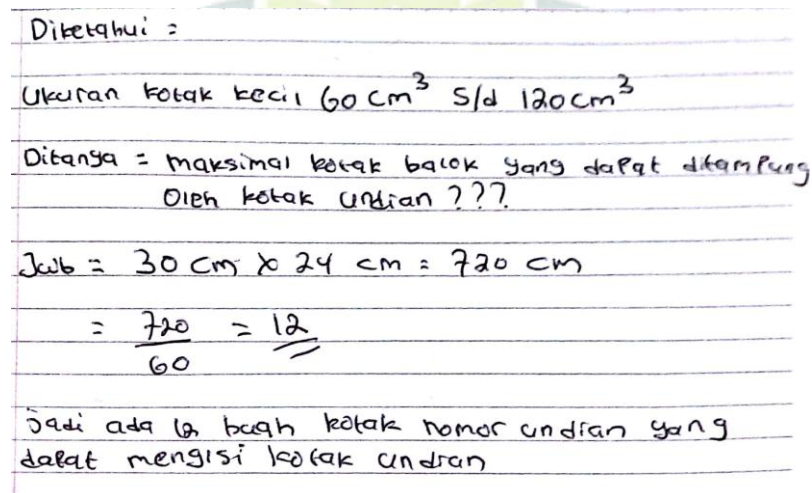 Diketahui =
Ukuran kotak kecil 60 cm³ s/d 120 cm³
Ditanya = maksimal kotak balok yang dapat ditampung
Oleh kotak undian ???
Jwb = 30 cm x 24 cm = 720 cm
= 720/60 = 12
Jadi ada 12 buah kotak nomor undian yang
dapat mengisi kotak undian